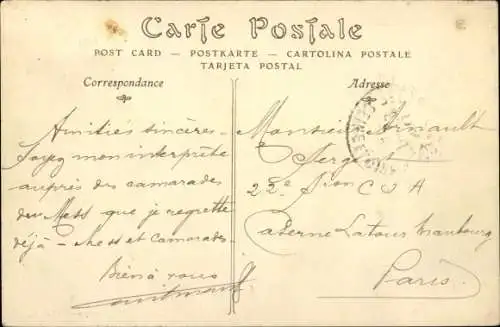 Carte Postale
POST CARD — POSTKARTE — CARTOLINA POSTALE
TARJETA POSTAL
Correspondance
Amitiés sincères -
Soyez mon interprète
auprès des camarades
du Mess que je regrette
déjà - Mess et camarades -
Bien à vous
Adresse
Monsieur Arnault
Sergent
22e Son C O A
Caserne Latour Maubourg
Paris